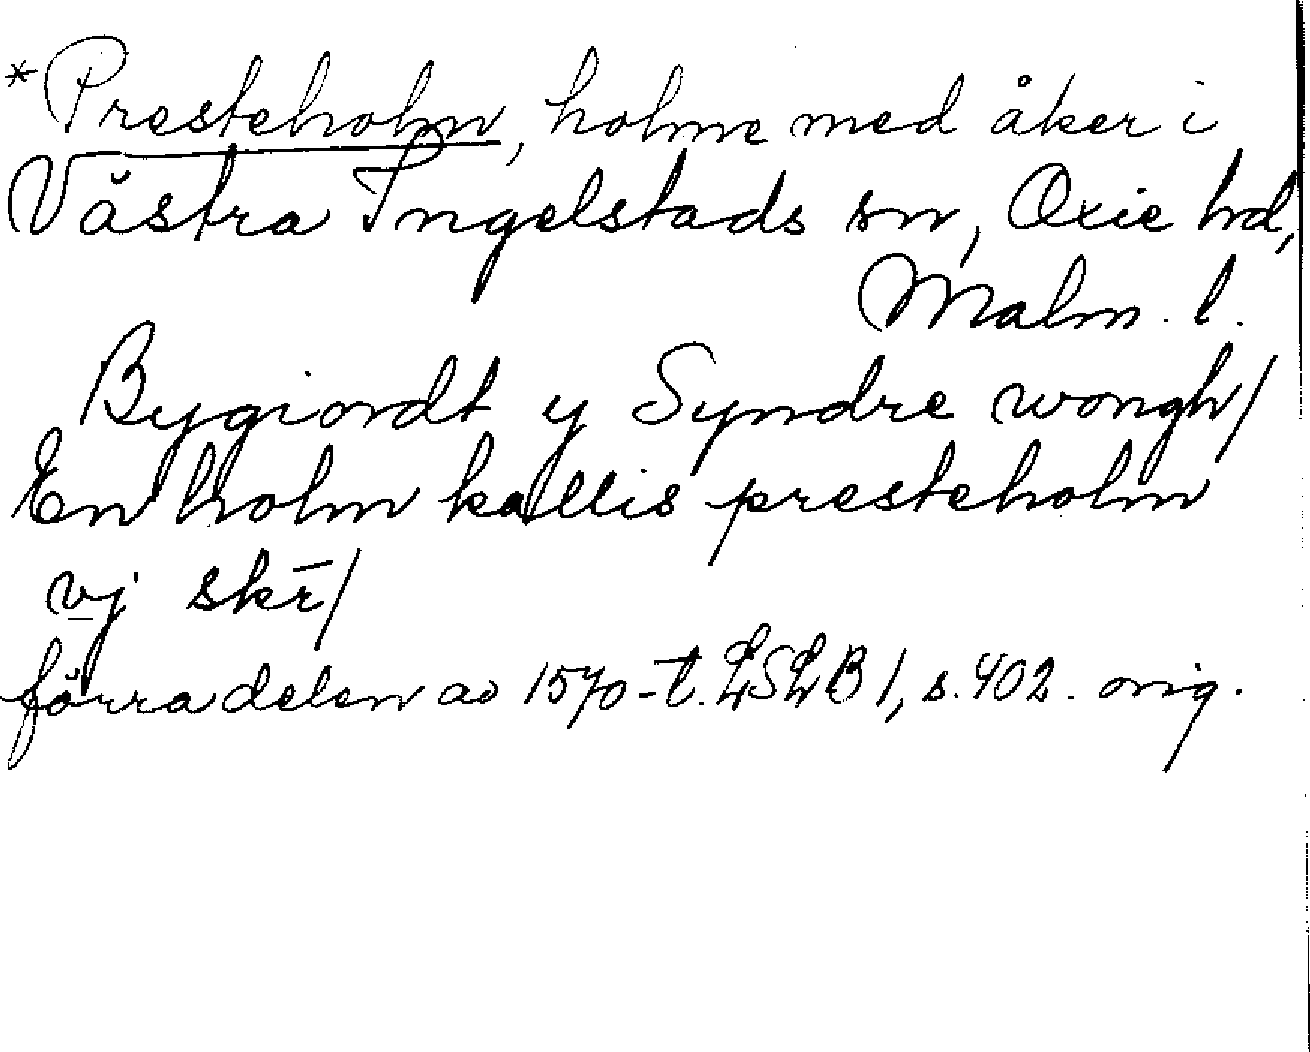 *Presteholm, holme med åker i
Västra Ingelstads sn, Oxie hd,
Malm. l.
Bygiordt y Syndre wongh/
En holm kallis presteholm
vj skr̄/
förra delen av 1570-t. LSLB 1, s. 402. orig.